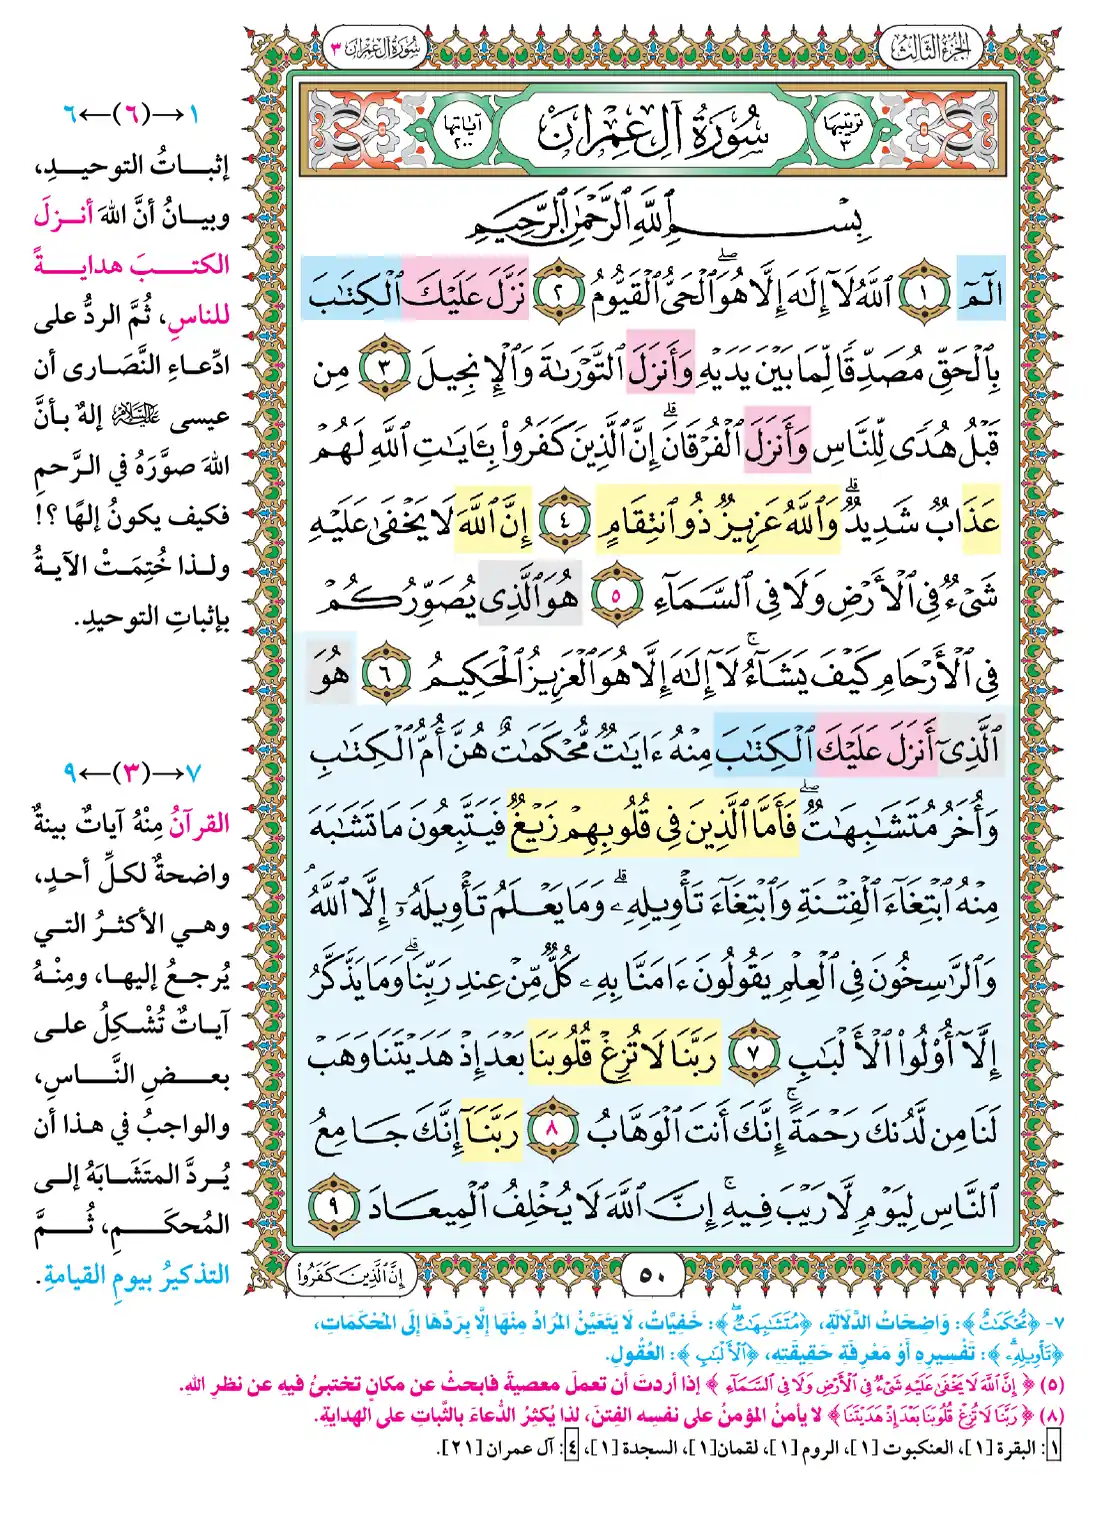 الجزء الثالث
سورة آل عمران ٣
ترتيبها ٣
سُورَةُ آلِ عِمْرَان
آياتها ٢٠٠
بِسْمِ ٱللَّهِ ٱلرَّحْمَٰنِ ٱلرَّحِيمِ
الٓمٓ ١ ٱللَّهُ لَآ إِلَٰهَ إِلَّا هُوَ ٱلْحَىُّ ٱلْقَيُّومُ ٢ نَزَّلَ عَلَيْكَ ٱلْكِتَٰبَ
بِٱلْحَقِّ مُصَدِّقًا لِّمَا بَيْنَ يَدَيْهِ وَأَنزَلَ ٱلتَّوْرَىٰةَ وَٱلْإِنجِيلَ ٣ مِن
قَبْلُ هُدًى لِّلنَّاسِ وَأَنزَلَ ٱلْفُرْقَانَ ۗ إِنَّ ٱلَّذِينَ كَفَرُوا۟ بِـَٔايَٰتِ ٱللَّهِ لَهُمْ
عَذَابٌ شَدِيدٌ ۗ وَٱللَّهُ عَزِيزٌ ذُو ٱنتِقَامٍ ٤ إِنَّ ٱللَّهَ لَا يَخْفَىٰ عَلَيْهِ
شَىْءٌ فِى ٱلْأَرْضِ وَلَا فِى ٱلسَّمَآءِ ٥ هُوَ ٱلَّذِى يُصَوِّرُكُمْ
فِى ٱلْأَرْحَامِ كَيْفَ يَشَآءُ ۚ لَآ إِلَٰهَ إِلَّا هُوَ ٱلْعَزِيزُ ٱلْحَكِيمُ ٦ هُوَ
ٱلَّذِىٓ أَنزَلَ عَلَيْكَ ٱلْكِتَٰبَ مِنْهُ ءَايَٰتٌ مُّحْكَمَٰتٌ هُنَّ أُمُّ ٱلْكِتَٰبِ
وَأُخَرُ مُتَشَٰبِهَٰتٌ ۖ فَأَمَّا ٱلَّذِينَ فِى قُلُوبِهِمْ زَيْغٌ فَيَتَّبِعُونَ مَا تَشَٰبَهَ
مِنْهُ ٱبْتِغَآءَ ٱلْفِتْنَةِ وَٱبْتِغَآءَ تَأْوِيلِهِۦ ۗ وَمَا يَعْلَمُ تَأْوِيلَهُۥٓ إِلَّا ٱللَّهُ ۗ
وَٱلرَّٰسِخُونَ فِى ٱلْعِلْمِ يَقُولُونَ ءَامَنَّا بِهِۦ كُلٌّ مِّنْ عِندِ رَبِّنَا ۗ وَمَا يَذَّكَّرُ
إِلَّآ أُو۟لُوا۟ ٱلْأَلْبَٰبِ ٧ رَبَّنَا لَا تُزِغْ قُلُوبَنَا بَعْدَ إِذْ هَدَيْتَنَا وَهَبْ
لَنَا مِن لَّدُنكَ رَحْمَةً ۚ إِنَّكَ أَنتَ ٱلْوَهَّابُ ٨ رَبَّنَآ إِنَّكَ جَامِعُ
ٱلنَّاسِ لِيَوْمٍ لَّا رَيْبَ فِيهِ ۚ إِنَّ ٱللَّهَ لَا يُخْلِفُ ٱلْمِيعَادَ ٩
٥٠
إِنَّ ٱلَّذِينَ كَفَرُوا۟
١→(٦)←٦
إثباتُ التوحيدِ،
وبيانُ أنَّ اللهَ أنزلَ
الكتبَ هدايةً
للناسِ، ثُمَّ الردُّ على
ادِّعاءِ النَّصَارى أن
عيسى عليه السلام إلهٌ بأنَّ
اللهَ صوَّرَهُ في الرَّحمِ
فكيف يكونُ إلهًا ؟!
ولذا خُتِمَتْ الآيةُ
بإثباتِ التوحيدِ.
٧→(٣)←٩
القرآنُ مِنْهُ آياتٌ بينةٌ
واضحةٌ لكلِّ أحدٍ،
وهي الأكثرُ التي
يُرجعُ إليها، ومِنْهُ
آياتٌ تُشْكِلُ على
بعضِ النَّاسِ،
والواجبُ في هذا أن
يُردَّ المتَشَابَهُ إلى
المُحكَمِ، ثُمَّ
التذكيرُ بيومِ القيامةِ.
٧- ﴿مُّحْكَمَٰتٌ﴾: وَاضِحَاتُ الدَّلَالَةِ، ﴿مُتَشَٰبِهَٰتٌ ۖ﴾: خَفِيَّاتٌ، لَا يَتَعَيَّنُ المُرَادُ مِنْهَا إِلَّا بِرَدِّهَا إِلَى المُحْكَمَاتِ،
﴿تَأْوِيلِهِۦ ۗ﴾: تَفْسِيرِهِ أَوْ مَعْرِفَةِ حَقِيقَتِهِ، ﴿ٱلْأَلْبَٰبِ﴾: العُقُولِ.
(٥) ﴿إِنَّ ٱللَّهَ لَا يَخْفَىٰ عَلَيْهِ شَىْءٌ فِى ٱلْأَرْضِ وَلَا فِى ٱلسَّمَآءِ﴾ إذا أردتَ أن تعملَ معصيةً فابحثْ عن مكانٍ تختبئُ فيه عن نظرِ اللهِ.
(٨) ﴿رَبَّنَا لَا تُزِغْ قُلُوبَنَا بَعْدَ إِذْ هَدَيْتَنَا﴾ لا يأمنُ المؤمنُ على نفسِه الفِتنَ، لذا يُكثِرُ الدُّعاءَ بالثَّباتِ على الهدايةِ.
١: البقرة [١]، العنكبوت [١]، الروم [١]، لقمان[١]، السجدة [١]، ٤: آل عمران [٢١].